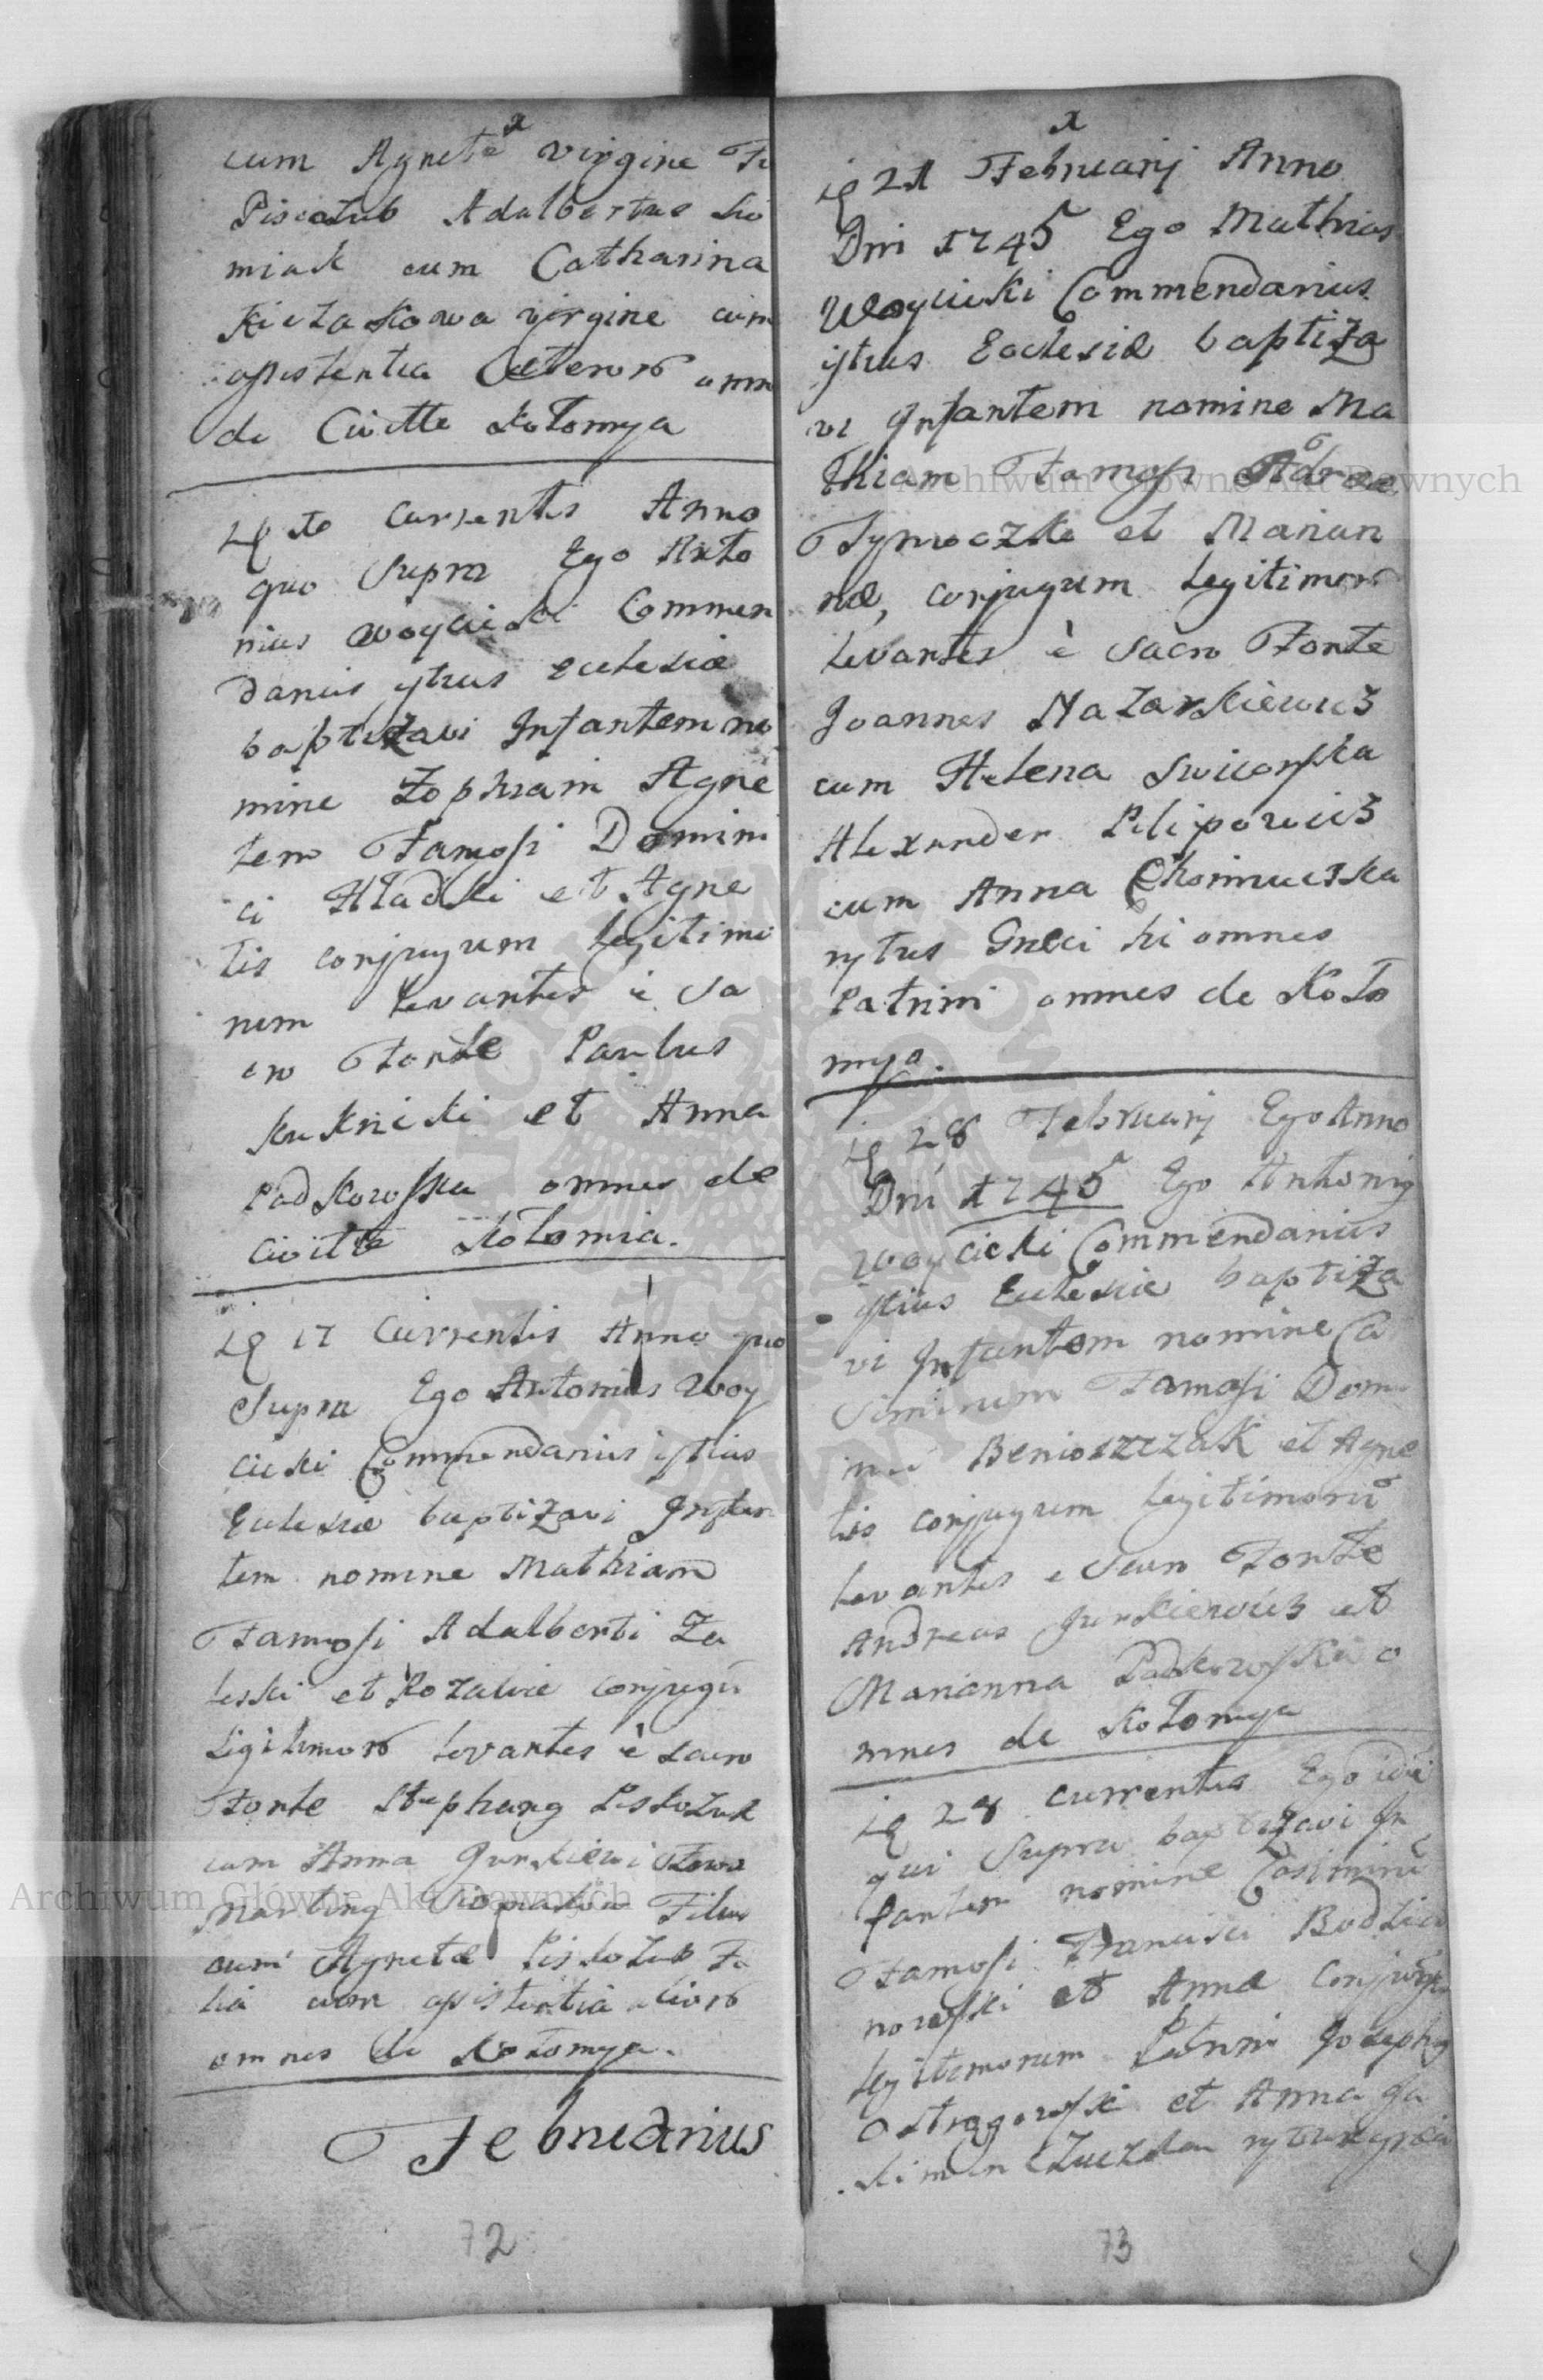 cum Agnete virgine Fi
Piscozub Adalbertus Sio
miak cum Catharina
Kiczakowa virgine cum
assistentia Caeteror omn
de Civitte Kołomya
currentis Anno
quo Supra Ego Anto
nius Woycicki Commen
darius ystius Eclesiæ
baptizavi Infantem no
mine Zophiam Agne
tem Famosi Domini
ci Hładki et Agne
tis conjugum legitimo
rum levantes è Sa
cro Fonte Paulus
Kuknicki et Anna
Padkowska omnes de
Civitte Kołomia.
17 Currentis Anno quo
Supra Ego Antonius Woy
cicki Commendarius istius
Eclesiæ baptizavi Infan
tem nomine Mathiam
Famosi Adalberti Za
leski et Rozaliæ conjugū
Legitimor levantes è Sacro
Fonte Stephang Piskozub
cum Anna Jurkiewiczowa
Marting Filius
cum Agnete Piskozub Fi
lia cum assistentia alior
omnes de Kołomya.
Februarius
72
21 Februarij Anno
Dni 1745 Ego Mathias
Woycicki Commendarius
ystius Eclesiæ baptiza
vi Infantem nomine Ma
thiam Famosi Adreæ
Tymoczko et Marian
næ, conjugum legitimor
levantes è Sacro Fonte
Joannes Nazarkiewicz
cum Helena
Alexander Pilipowicz
cum Anna
rytus Græci hi omnes
Patrini omnes de Koło
mya.
28 Februarij Ego Anno
Dni 1745 Ego Antonig
Woycicki Commendarius
ystius Eclesiæ baptiza
vi Infantem nomine Ca
simirum Famosi Domi
nici Benioszczak et Agne
tis conjugum legitimorū
levantes e Sacro Fonte
Andreas Jurkiewicz et
Marianna Padkowska o
mnes de Kołomya
28 currentis Ego idē
qui Supra baptizavi In
fantem nomine Casimirū
Famosi Francisci Bodzia
nowski et Annæ Conjugū
legitimorum Patrini Josephg
Ostrogowski et Anna Ja
kimin
73
Archiwum Główne Akt Dawnych
Archiwum Główne Akt Dawnych